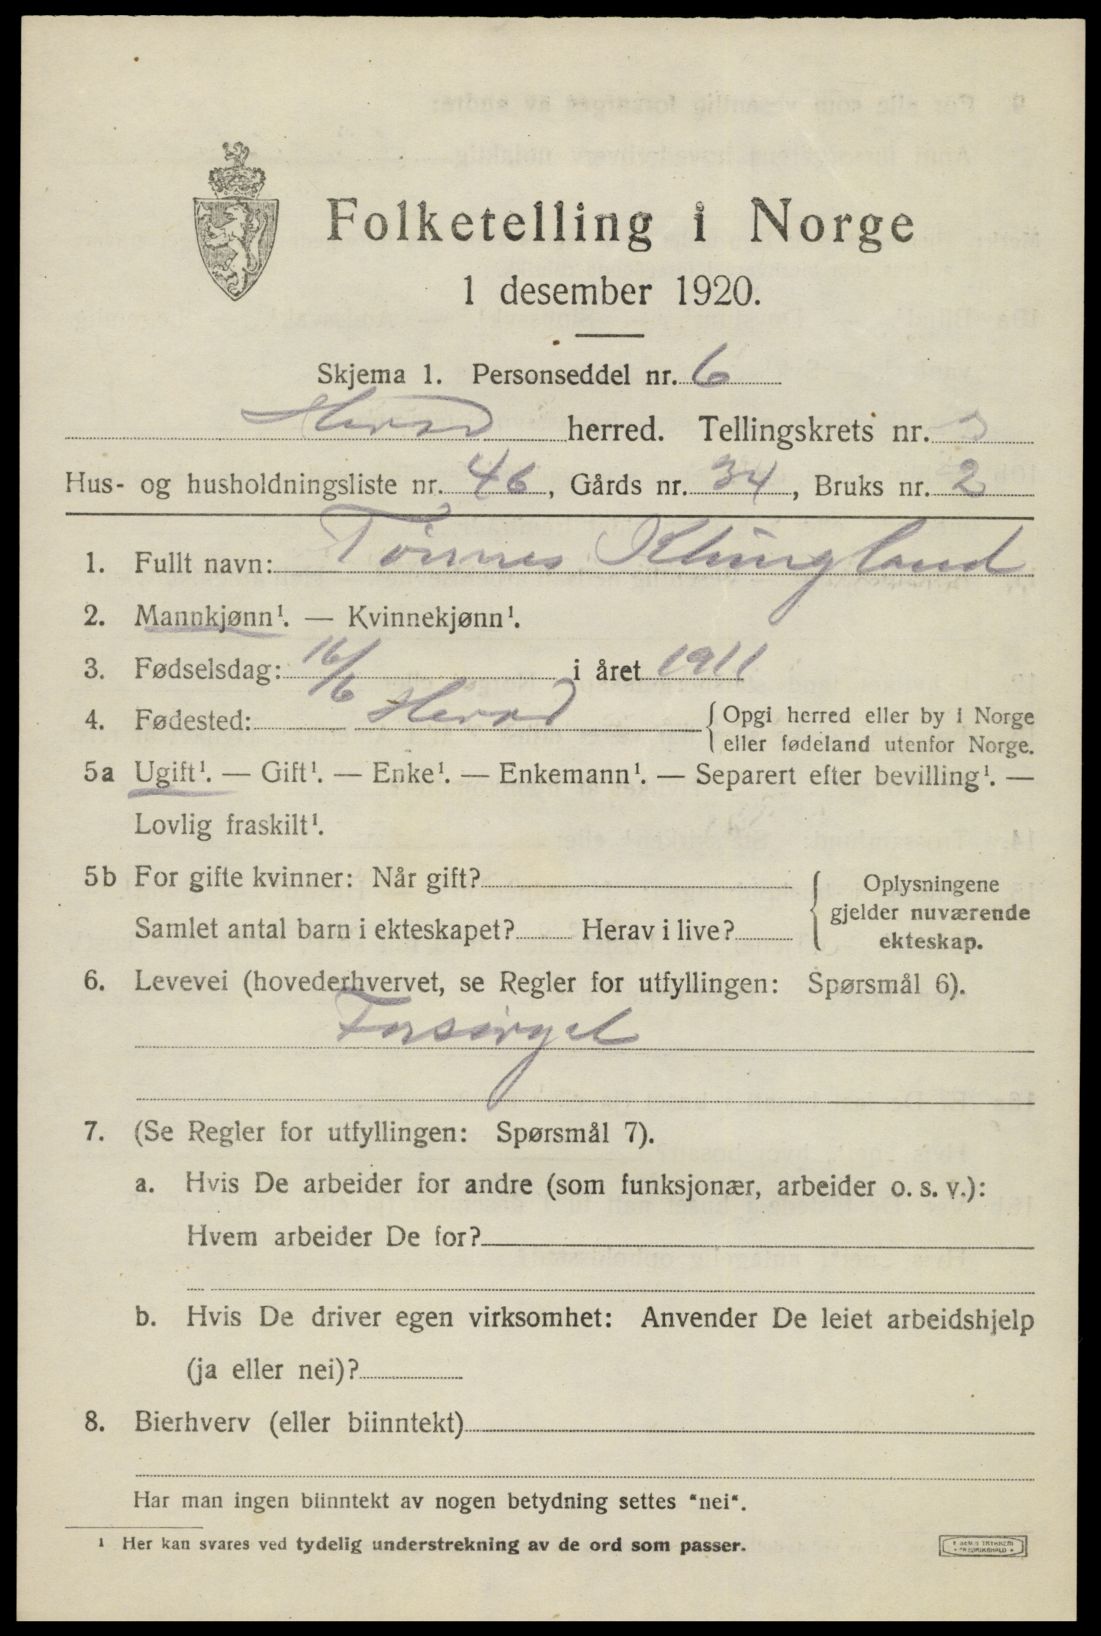 Folketelling i Norge
1 desember 1920.
Skjema 1. Personseddel nr. 6
Herad herred. Tellingskrets nr. 3
Hus- og husholdningsliste nr. 46, Gårds nr. 34, Bruks nr. 2
1. Fullt navn: Tønnes Klungland
2. Mannkjønn¹. — Kvinnekjønn¹.
3. Fødselsdag: 16/6 i året 1911
4. Fødested: Herad {Opgi herred eller by i Norge
eller fødeland utenfor Norge.
5a Ugift¹. — Gift¹. — Enke¹. — Enkemann¹. — Separert efter bevilling¹. —
Lovlig fraskilt¹.
5b For gifte kvinner: Når gift? { Oplysningene
gjelder nuværende
Samlet antal barn i ekteskapet? Herav i live? ekteskap.
6. Levevei (hovederhvervet, se Regler for utfyllingen: Spørsmål 6).
Forsørget
7. (Se Regler for utfyllingen: Spørsmål 7).
a. Hvis De arbeider for andre (som funksjonær, arbeider o. s. v.):
Hvem arbeider De for?
b. Hvis De driver egen virksomhet: Anvender De leiet arbeidshjelp
(ja eller nei)?
8. Bierhverv (eller biinntekt)
Har man ingen biinntekt av nogen betydning settes "nei".
¹ Her kan svares ved tydelig understrekning av de ord som passer.